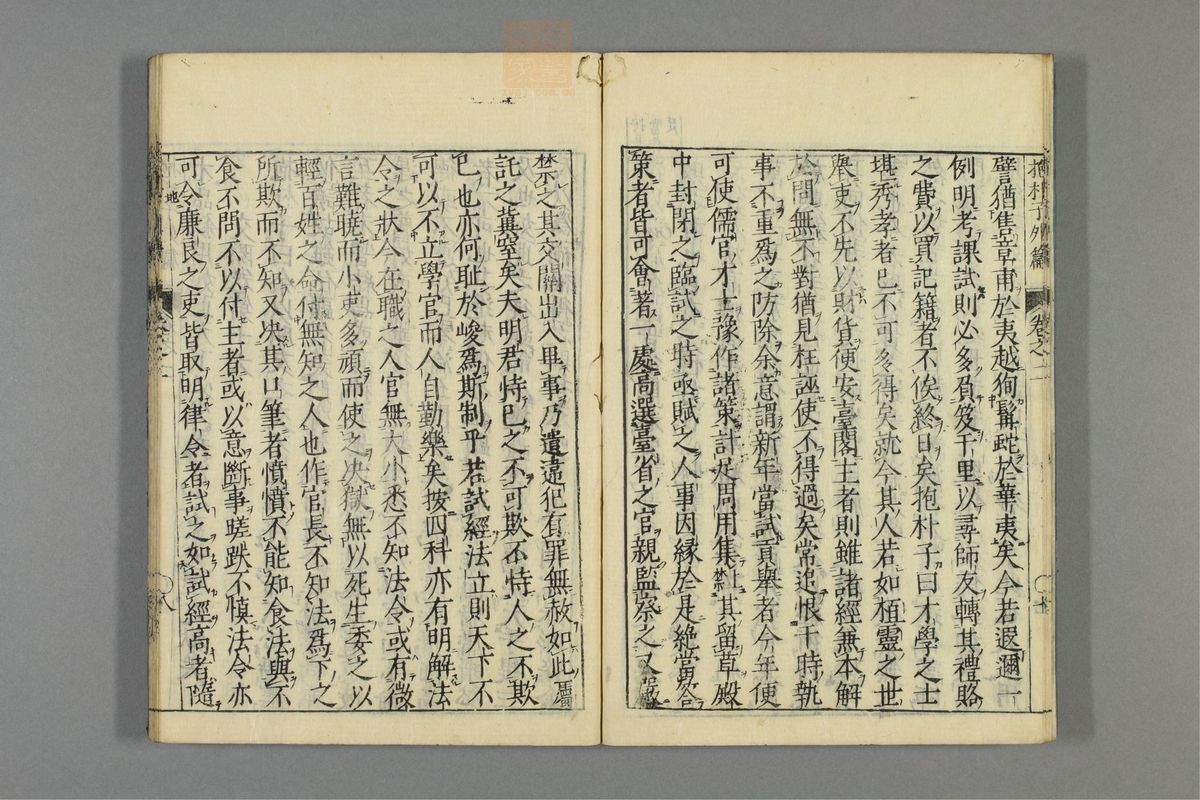 抱朴子外篇　卷之二
譬猶售章甫於夷越徇髯蛇於華夷矣今若遐邇一
例明考課試則必多負笈千里以尋師友轉其禮賂
之費以買記籍者不俟終日矣抱朴子曰才學之士
堪秀孝者已不可多得矣就今其人若如桓靈之世
舉吏不先以財貨便安臺閣主者則雖諸經兼本解
於問無不對猶見枉誣使不得過矣常追恨于時執
事不重爲之防除余意謂新年當試貢舉者今年便
可使儒官才士豫作諸策計足周用集禁其留草殿
中封閉之臨試之時亟賦之人事因緣於是絶當答
策者皆可會著一處高選臺省之官親監察之又嚴
禁之其交關出入畢事乃遣違犯有罪無赦如此屬
託之冀窒矣夫明君恃已之不可欺不恃人之不欺
已也亦何耻於峻爲斯制乎若試經法立則天下不
可以不立學官而人自勤樂矣按四科亦有明解法
令之狀今在職之人官無大小悉不知法令或有微
言難曉而小吏多頑而使之决獄無以死生委之以
輕百姓之命付無知之人也作官長不知法爲下之
所欺而不知又决其口筆者憤憤不能知食法與不
食不問不以付主者或以意斷事蹉跌不慎法令亦
可令廉良之吏皆取明律令者試之如試經高者隨
地
八